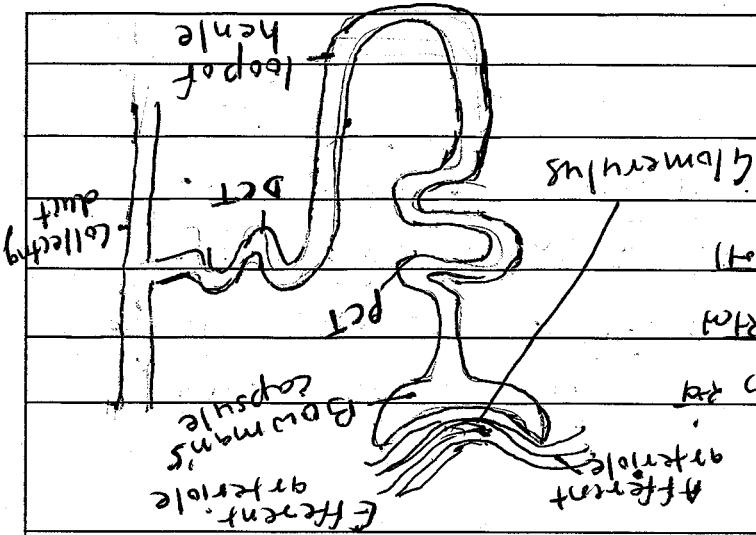 Afferent
arteriole
Efferent
arteriole
Bowman's
capsule
PCT
Glomerulus
DCT
Collecting
duct
loop of
henle